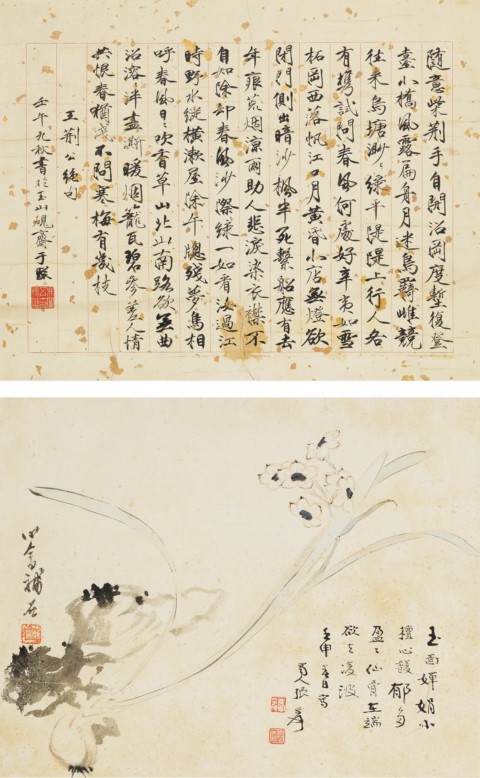 隨意柴荊手自開沿岡度塹復登
臺小橋風露扁舟月迷鳥羈雌競
往來烏塘渺渺綠平隄隄上行人各
有攜試問春風何處好辛夷如雪
柘岡西落帆江口月黃昏小店無燈欲
閉門側出暗沙楓半死繫船應有去
年痕荒烟涼雨助人悲淚染衣襟不
自知除却春風沙際綠一如看汝過江
時野水縱橫漱屋除午窗殘夢鳥相
呼春風日日吹香草山北山南路欲無曲
沼溶溶泮盡澌暖烟籠瓦碧參差人情
共恨春猶淺不問寒梅有幾枝
王荊公絕句
壬午九秋書於玉山硯齋于
玉面嬋娟小
檀心馥郁多
盈盈仙骨在端
欲去凌波
壬申春日寫
蜀人張爰
心畬補石